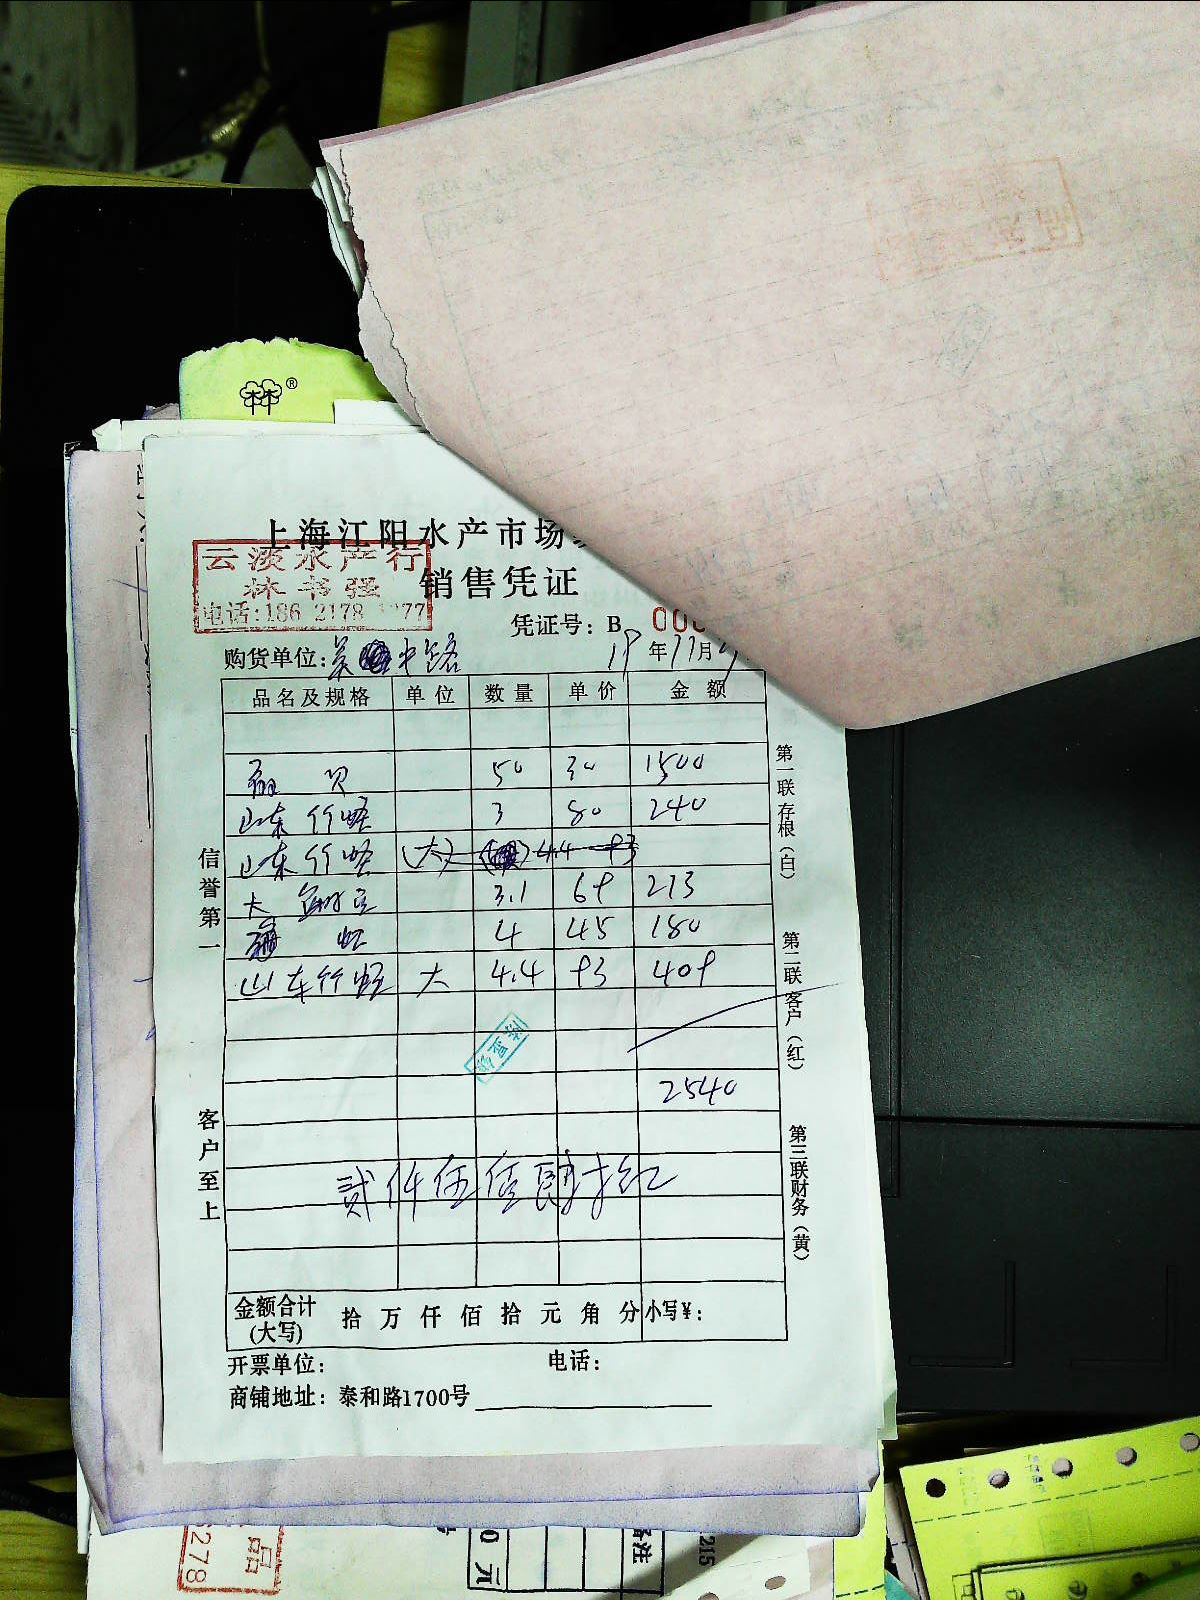 上海江阳水产市场
云淡水产行
林书强
电话:186 2178
销售凭证
凭证号: B 00
购货单位: 吴中路
19年11月
品名及规格 单位 数量 单价 金额
贝 50 30 1500
山东竹蛏 3 80 240
山东竹蛏 (大) 4.4 93
大 3.1 69 213
虹 4 45 180
山东竹蛏 大 4.4 93 409
2540
贰仟伍佰肆拾
金额合计(大写) 拾 万 仟 佰 拾 元 角 分 小写¥:
开票单位: 电话:
商铺地址: 泰和路1700号
信誉第一
客户至上
第一联存根(白)
第二联客户(红)
第三联财务(黄)
278
品
0元
备注
215